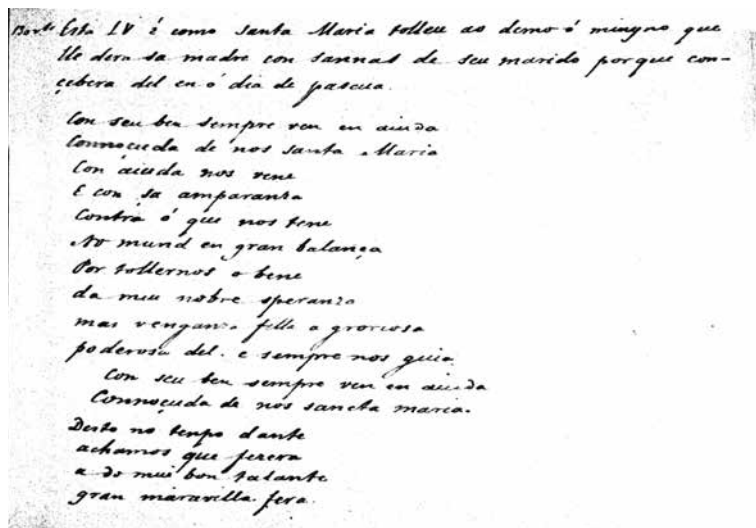 Esta IV é como Santa Maria tolleu ao demo ó minyno que
lle dera sa madre con sannas de seu marido porque con-
çebera del en ó dia de pascua.
Con seu ben sempre ven en aiuda
Connoçuda de nos santa Maria
Con aiuda nos vene
E con sa amparanza
Contra ó que nos tene
No mund en gran balança
Por tollernos o bene
da mui nobre speranza
mas venganza filla a groriosa
poderosa del. e sempre nos guia
Con seu ben sempre ven en aiuda
Connoçuda de nos sancta maria.
Desto no tenpo dante
achamos que fezera
a do mui bon talante
gran maravilla fera.